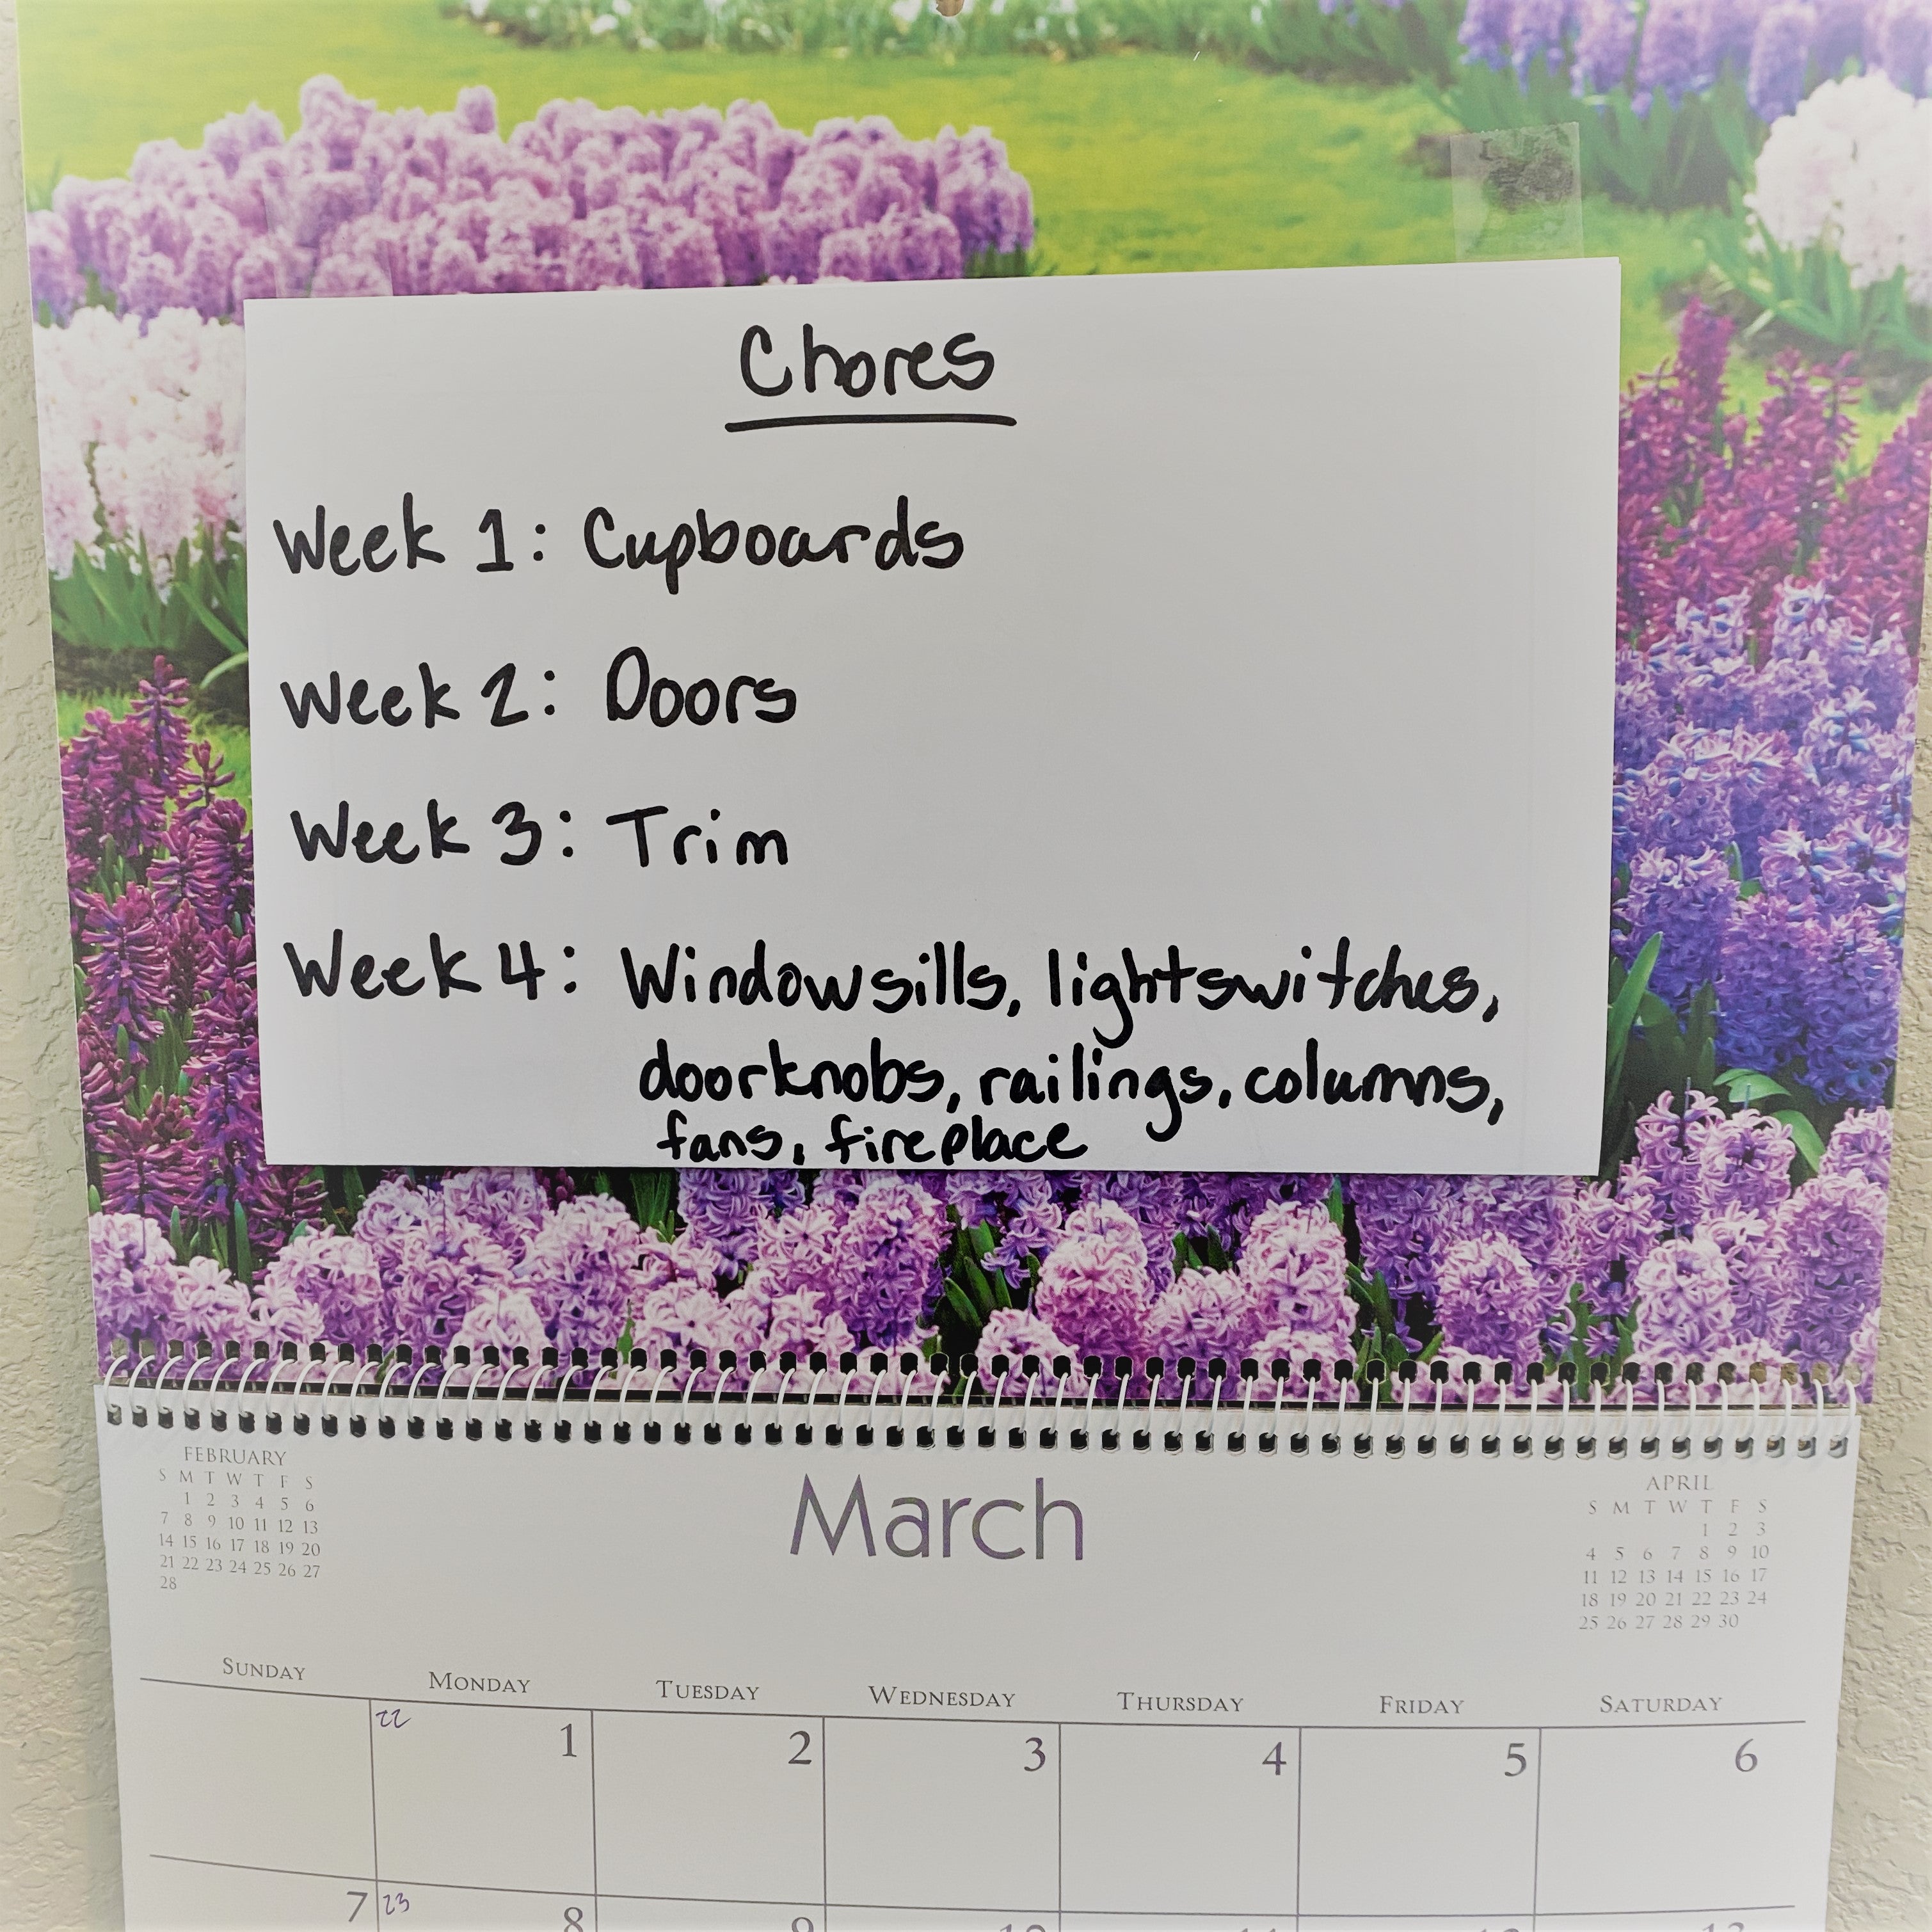 Chores
Week 1: Cupboards
Week 2: Doors
Week 3: Trim
Week 4: Windowsills, lightswitches,
doorknobs, railings, columns,
fans, fireplace
FEBRUARY
S M T W T F S
1 2 3 4 5 6
7 8 9 10 11 12 13
14 15 16 17 18 19 20
21 22 23 24 25 26 27
28
March
APRIL
S M T W T F S
1 2 3
4 5 6 7 8 9 10
11 12 13 14 15 16 17
18 19 20 21 22 23 24
25 26 27 28 29 30
SUNDAY MONDAY TUESDAY WEDNESDAY THURSDAY FRIDAY SATURDAY
22 1 2 3 4 5 6
7 23 8 9 10 11 12 13